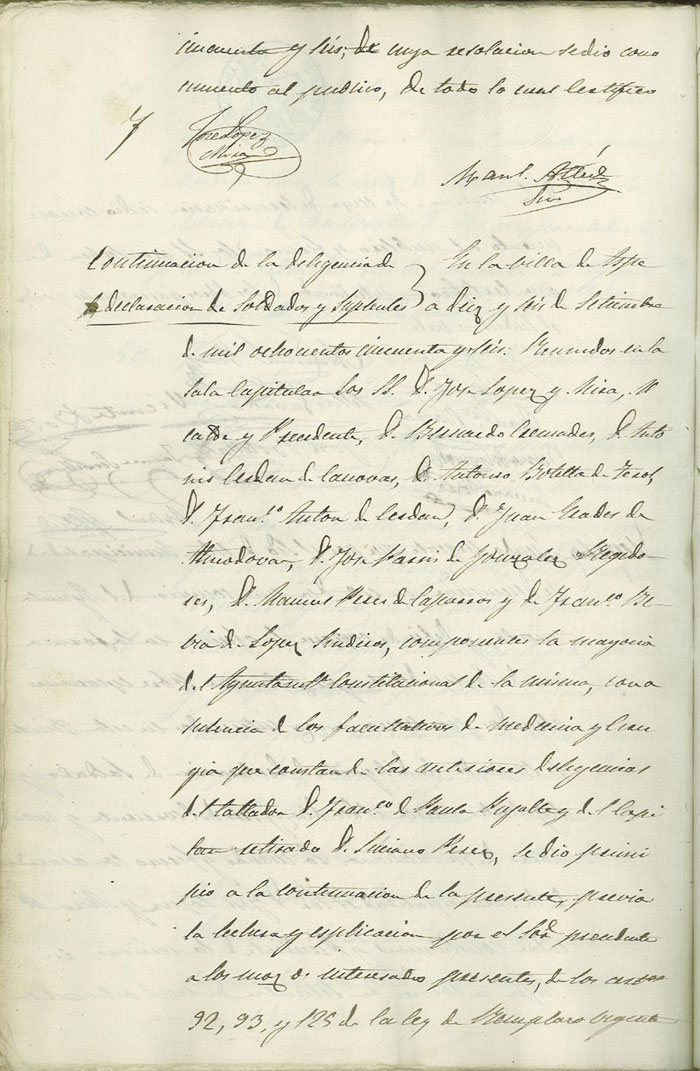 cincuenta y seis, de cuya resolucion se dio cono
cimiento al publico, de todo lo cual certifico
Jose Lopez
Mira
Man.l
Continuacion de la diligencia de
declaracion de Soldados y Suplentes
En la villa de Aspe
a diez y seis de Setiembre
de mil ochocientos cincuenta y seis: Reunidos en la
Sala Capitular los SS. D. Jose Lopez y Mira, Al
calde y Presidente, D. Bernardo Cremades, D. Anto
nio Cerdan de Canovas, D. Antonio Botella de
D. Fran.co Anton de Cerdan, D. Juan de
Almodovar, D. Jose de Gonzalez Regido
res, D. Manuel Peres de Caparros y D. Fran.co Be
via de Lopez Sindicos, componentes la mayoria
del Ayuntam.to Constitucional de la misma, con a
sistencia de los facultativos de medicina y Ciru
gia que constan de las anteriores diligencias
del tallador D. Fran.co de Paula y del Capi
tan retirado D. Luciano Peres, se dio princi
pio a la continuacion de la presente, previa
la lectura y esplicacion por el Sor. presidente
a los moz.os interesados presentes, de los
92, 93, y 125 de la ley de Remplazo vigente